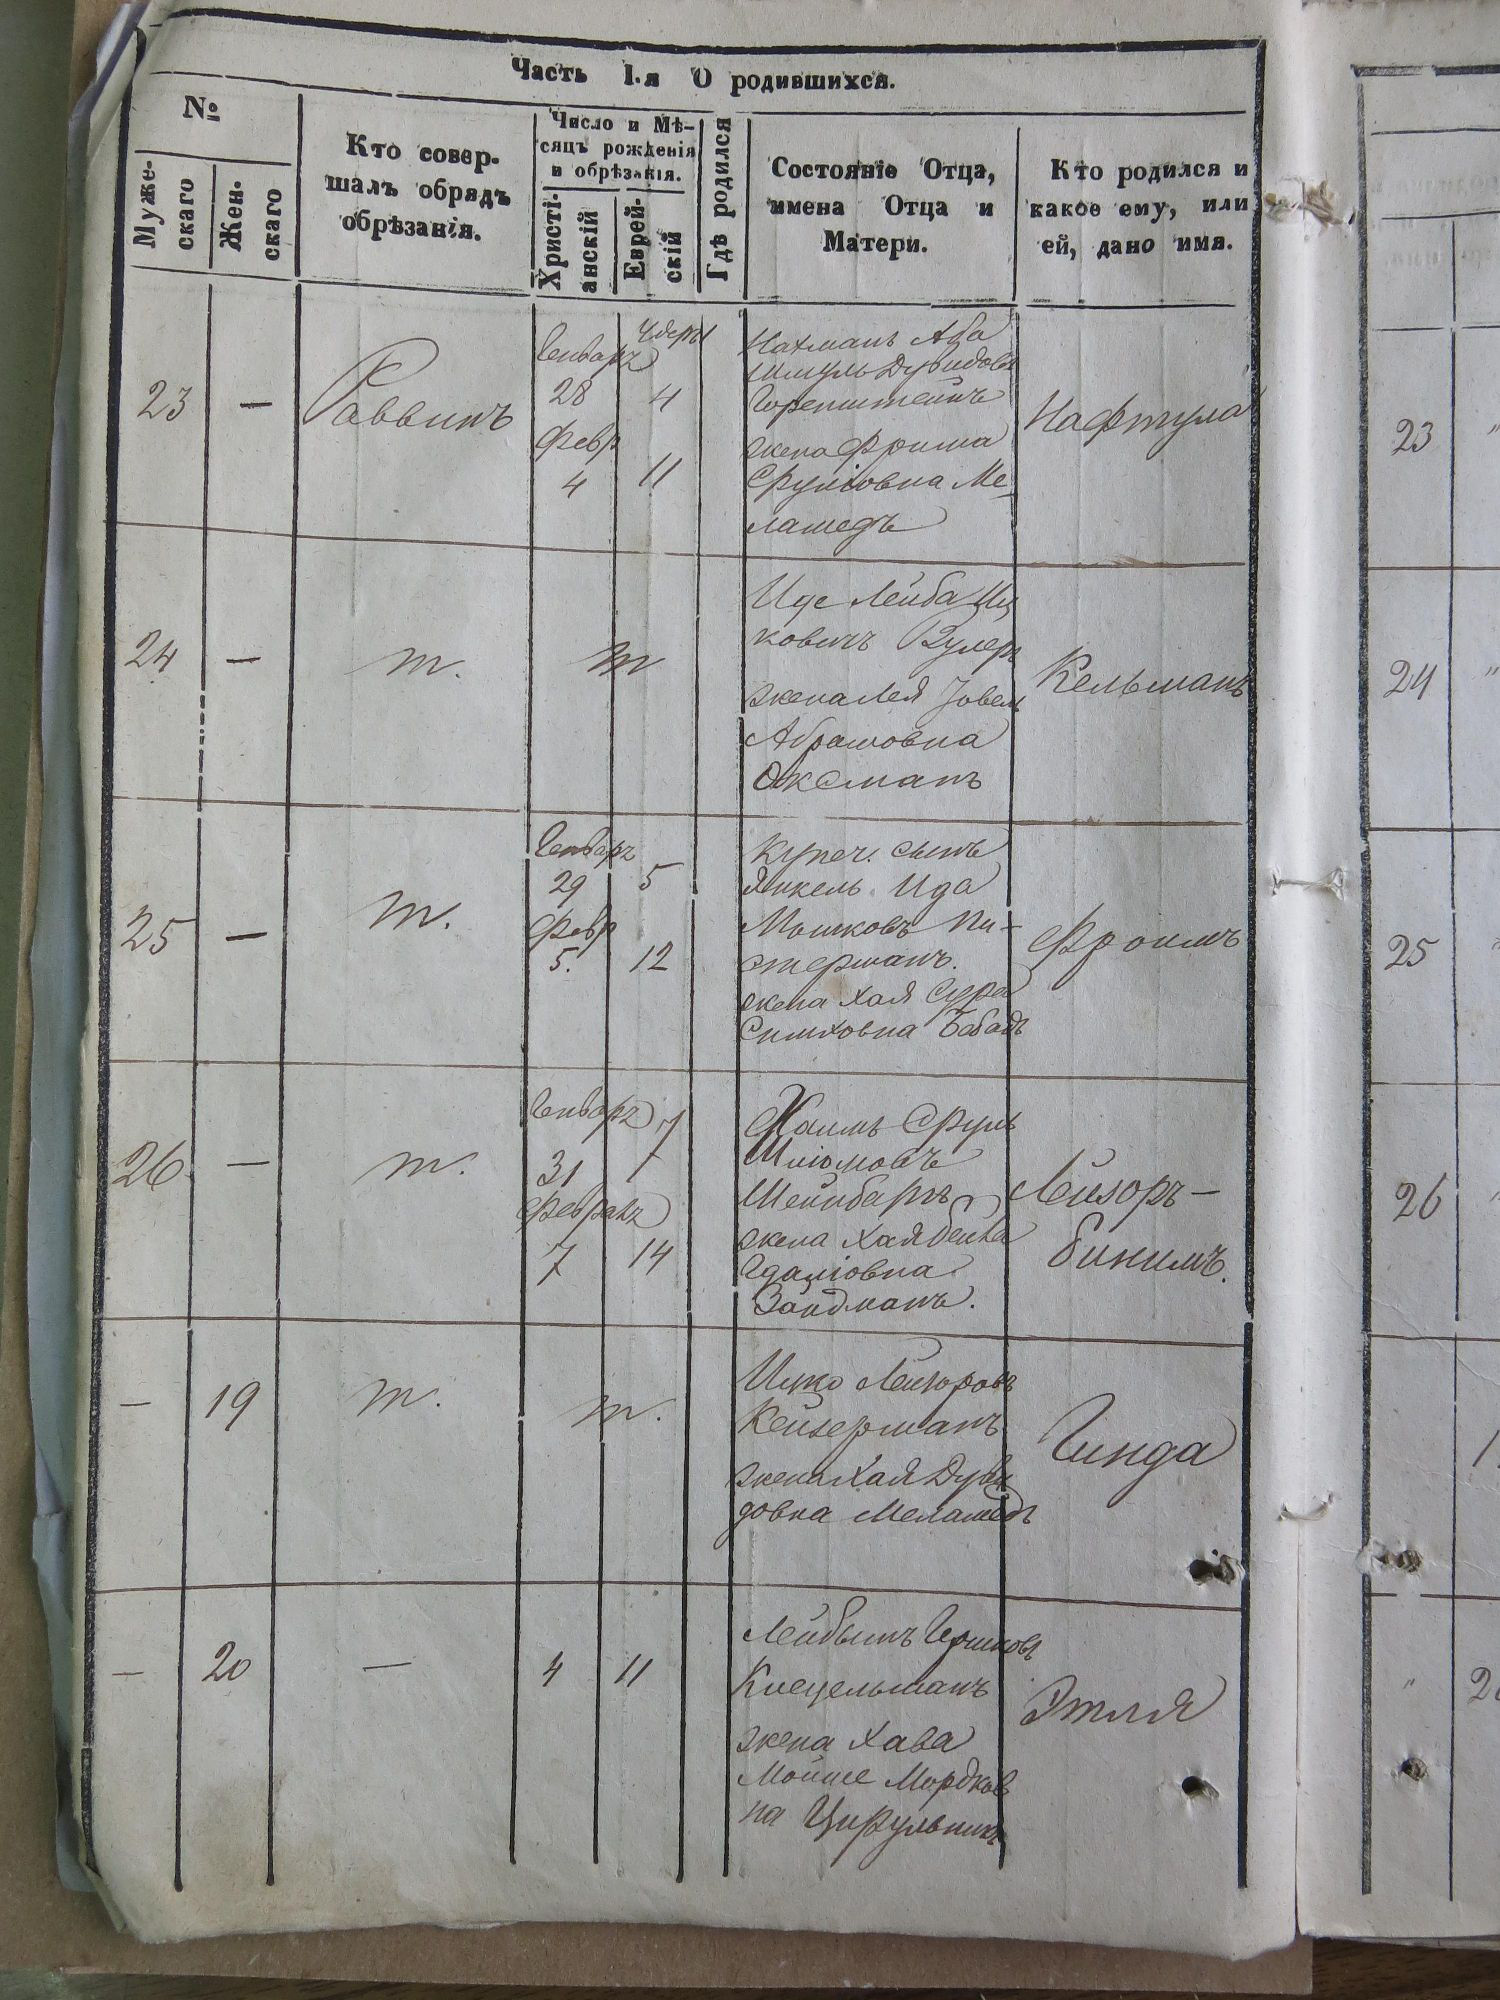 Часть I.я О родившихся.
№
Муже-
скаго
Жен-
скаго
Кто совер-
шалъ обрядъ
обрѣзанія.
Число и Мѣ-
сяцъ рожденія
и обрѣзанія.
Христі-
анскій
Еврей-
скій
Гдѣ родился
Состояніе Отца,
имена Отца и
Матери.
Кто родился и
какое ему, или
ей, дано имя.
23
—
Раввинъ
Генварь
28
4
февр
4
11
Нахманъ Аба
Шмуль Дувидовъ
Горенштейнъ
жена Фрима
Срулiовна Ме-
ламедъ
Нафтула
24
—
т.
т
Иде Лейба Иц
ковичъ
жена Лея
Абрамовна
Оксманъ
Кельманъ
25
—
т.
Генварь
29
5
февр
5.
12
купеч. сынъ
Янкель Ида
Мошковъ Пи-
стерманъ.
жена Хая Сура
Симховна Бабадъ
Фроимъ
26
—
т.
Генварь
31
7
февраль
7
14
Хаимъ Сруль
Шлiомовъ
Шейнбаргъ
жена Хая Бейла
Гдалiовна
Зандманъ.
Лейзоръ-
бинимъ.
—
19
т.
т.
Ицко Лейзоровъ
Кейзерманъ
жена Хая Дуви
довна Меламедъ
Гинда
—
20
—
4
11
Лейбышъ Гершковъ
Кисцельманъ
жена Хава
Мойше Мордков
на Цирульникъ
Этля
23
24
25
26